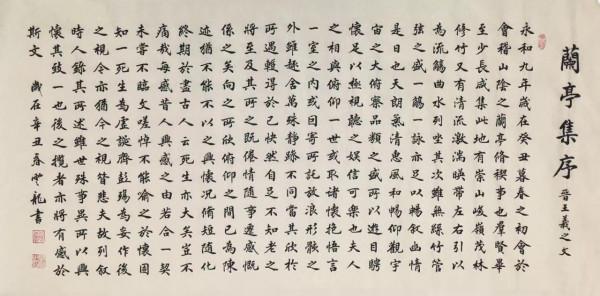 蘭亭集序 晉王羲之文
永和九年歲在癸丑暮春之初會於
會稽山陰之蘭亭脩稧事也羣賢畢
至少長咸集此地有崇山峻嶺茂林
修竹又有清流激湍暎帶左右引以
為流觴曲水列坐其次雖無絲竹管
弦之盛一觴一詠亦足以暢叙幽情
是日也天朗氣清惠風和暢仰觀宇
宙之大俯察品類之盛所以遊目騁
懷足以極視聽之娛信可樂也夫人
之相與俯仰一世或取諸懷抱悟言
一室之內或因寄所託放浪形骸之
外雖趣舍萬殊靜躁不同當其欣於
所遇暫得於己快然自足不知老之
將至及其所之既倦情隨事遷感慨
係之矣向之所欣俯仰之間已為陳
迹猶不能不以之興懷況脩短隨化
終期於盡古人云死生亦大矣豈不
痛哉每攬昔人興感之由若合一契
未嘗不臨文嗟悼不能喻之於懷固
知一死生為虛誕齊彭殤為妄作後
之視今亦猶今之視昔悲夫故列叙
時人錄其所述雖世殊事異所以興
懷其致一也後之攬者亦將有感於
斯文 歲在辛丑春 龍書